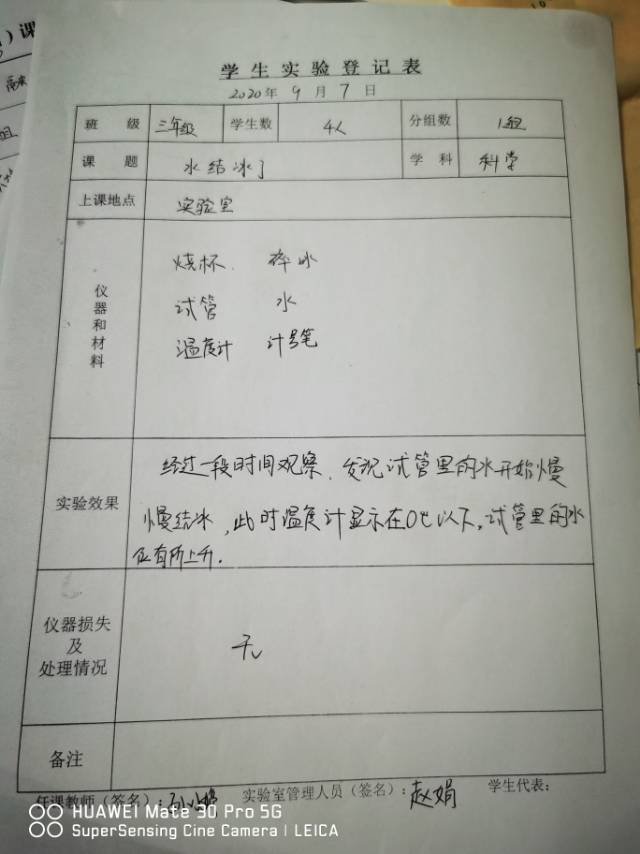 )课
组
学生实验登记表
2020年 9 月 7 日
班 级 三年级 学生数 4人 分组数 1组
课 题 水结冰了 学 科 科学
上课地点 实验室
仪器和材料
烧杯 碎冰
试管 水
温度计 计号笔
实验效果
经过一段时间观察,发现试管里的水开始慢
慢结冰,此时温度计显示在0℃以下,试管里的水
位有所上升.
仪器损失
及
处理情况
无
备注
任课教师(签名): 实验室管理人员(签名):赵娟 学生代表:
HUAWEI Mate 30 Pro 5G
SuperSensing Cine Camera | LEICA